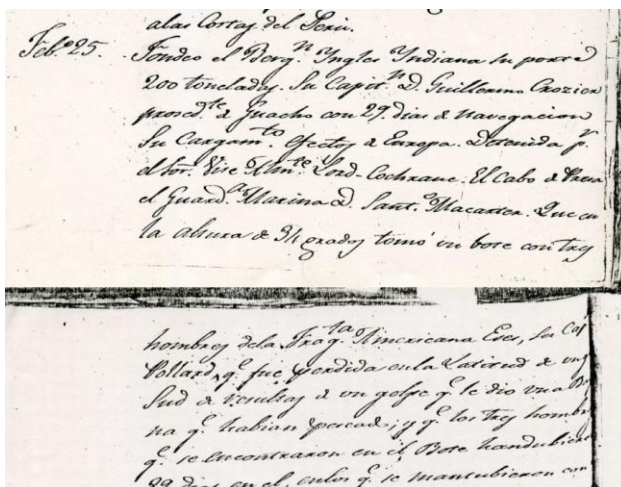 alas Costas del Perú.
Feb.º 25. Fondeo el Berg.n Yngles Yndiana su porte
200 toneladas. Su Capit.n D. Guillermo Crozier
proced.te d Guacho con 29. dias d navegacion
Su Cargam.to efectos d Europa. Detenida p.r
el Sor. Vise Alm.te Lord-Cochrane. El Cabo d Presa
el Guard.a Marina D. Sant.o Macarter. Que en
la altura d 34 grados tomó un bote con tres
hombres dela Frag.ta Americana Eses, su Cap
Pollard, q.e fue perdida en la Latitud d
Sud d resultas d un golpe q.e le dio una Ba
na q.e habian pescado; y q.e los tres homb
q.e se encontraron en el Bote handubieron
29 dias en el, enlos q.e se mantubieron con